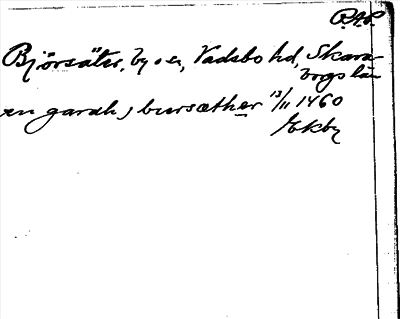 P.A.S.
Björsäter, by o sn, Vadsbo hd, Skara-
borgs län
en gardh j bursæther 13/11 1460
Ekby